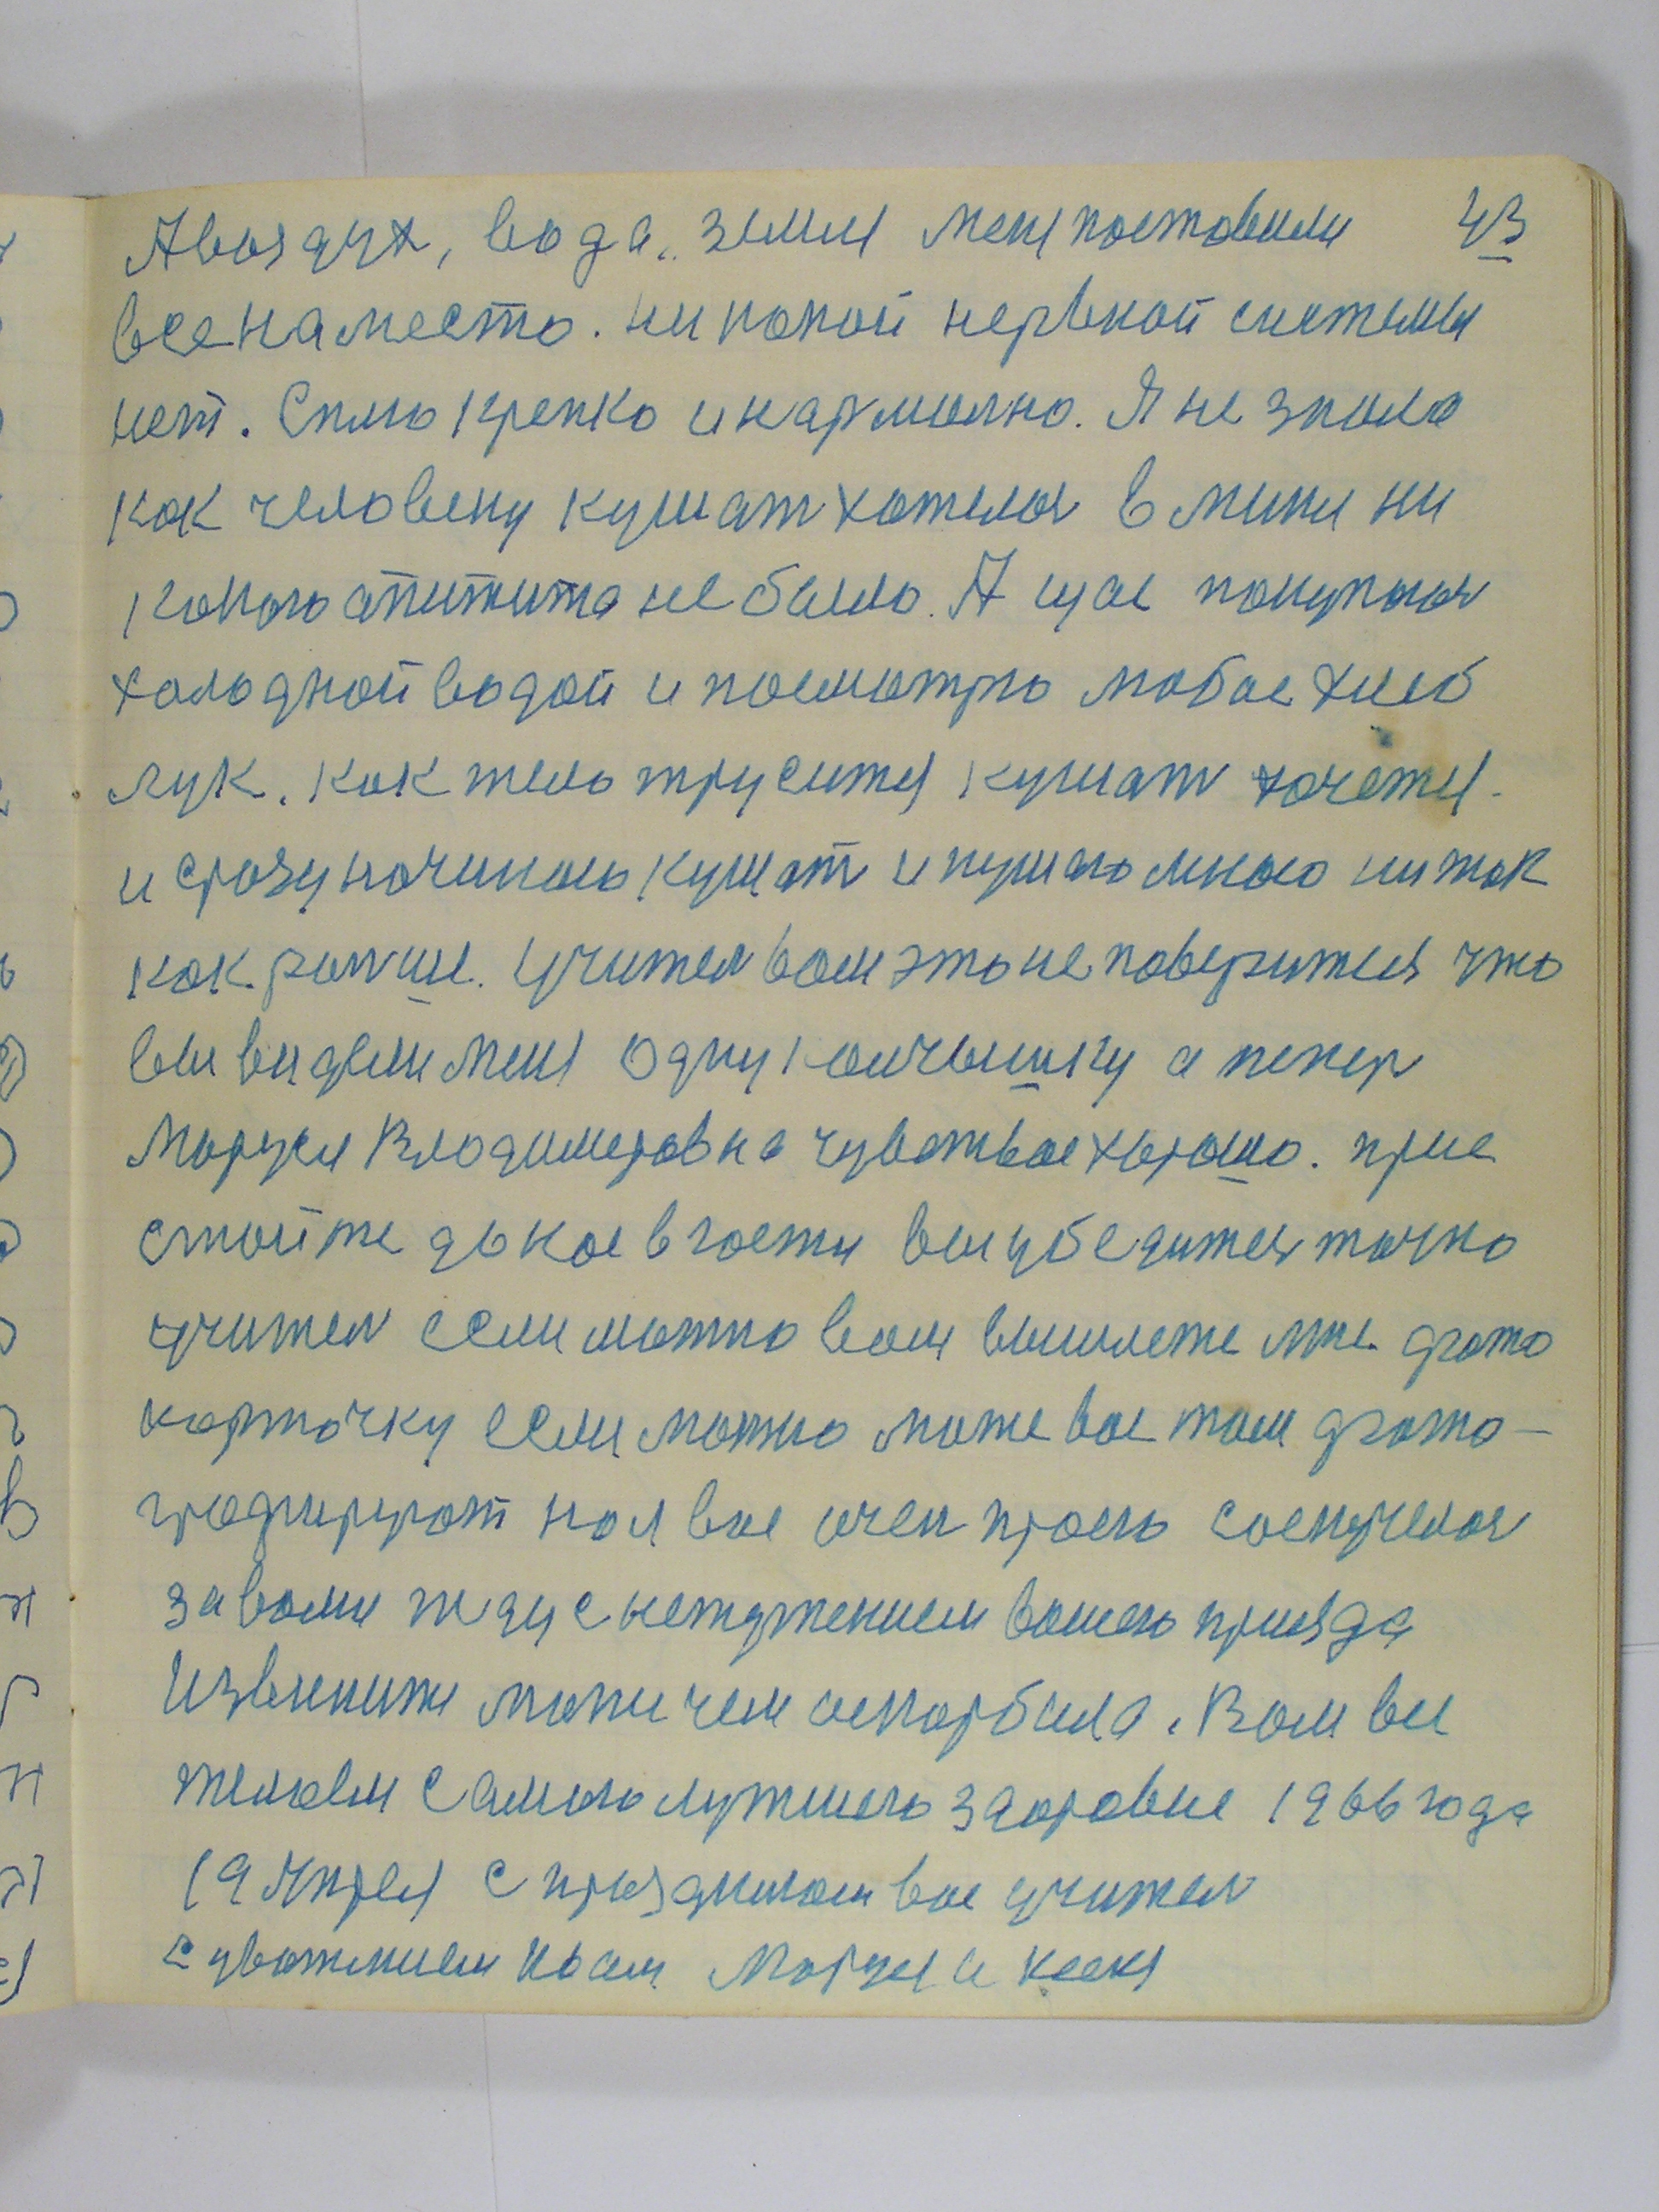 Авоздух, вода, земля меня поставили 43
все на место. ни какой нервной системы
нет. Сплю крепко и нармално. Я не знала
как человеку кушат хотелось в мини ни
какого апитита не было. А щас покупаюсь
холодной водой и посмотрю любое хлеб
лук. как тело трусится кушать хочется.
и сразу начинаю кушат и кушаю много ни так
как раньше. Учитель вам это не поверится что
вы видели меня одну кастышку а тепер
Маруся Владимеровна чувствое хорошо. прие
стойте до нас в гости вы убедитесь точно
учитель если можно вам вышлете мне фото
карточку если можно може вас там фото-
графируют на я вас очен прошу соскучелась
за вами жду с нетужением вашего приезда
Извените може чем оскорбила. Вам все
желаем самого лутшего здоровие 1966 года
19 Апреля с праздником вас учитель
с уважением к вам Маруся и